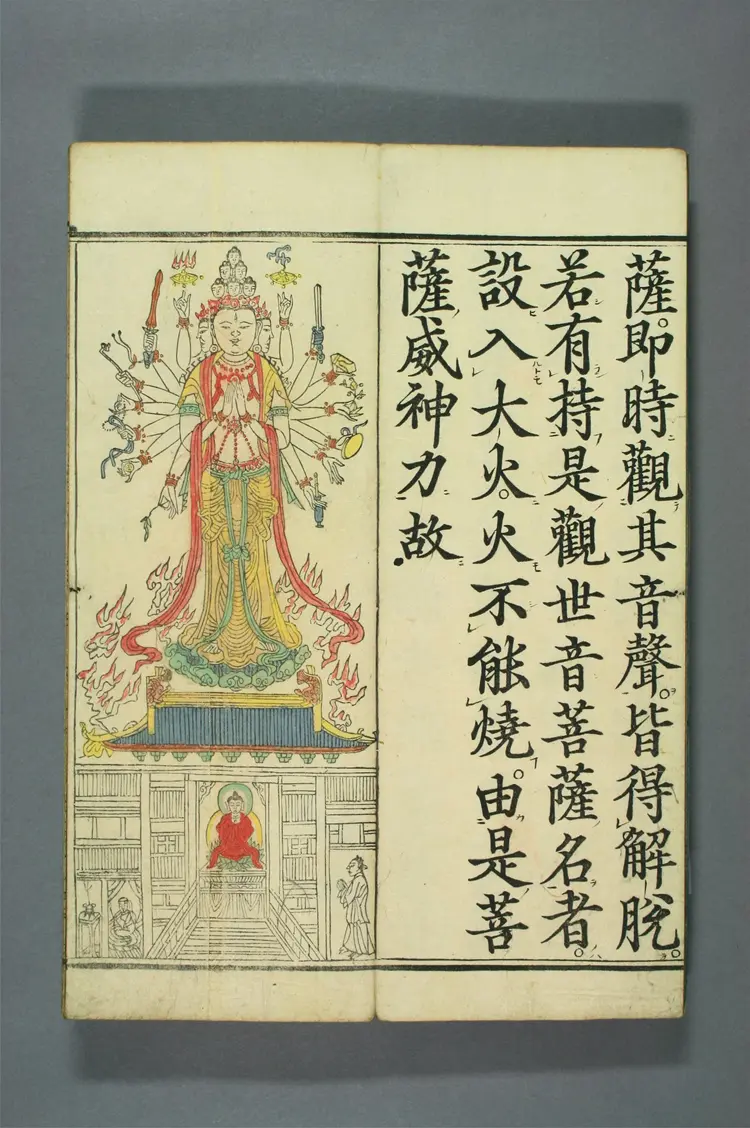 薩。即時觀其音聲。皆得解脫。
若有持是觀世音菩薩名者。
設入大火。火不能燒。由是菩
薩威神力故.